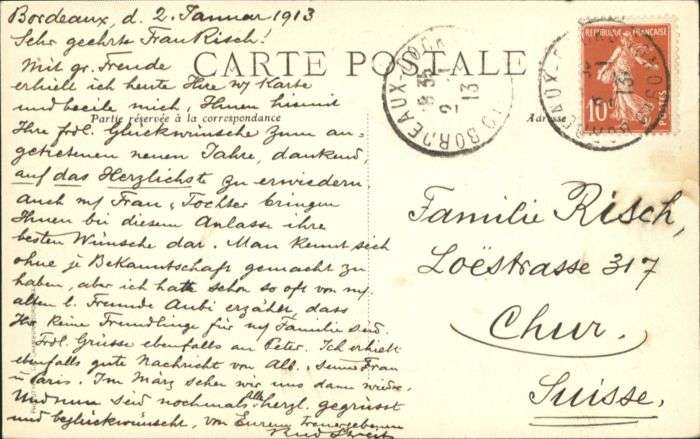 Bordeaux, d. 2. Januar 1913
Sehr geehrte Frau Risch!
Mit gr. Freude
erhielt ich heute Ihre w/ Karte
und beeile mich, Ihnen hiemit
Ihre frdl. Glückwünsche zum an-
getretenen neuen Jahre, dankend,
auf das Herzlichste zu erwiedern,
auch m/ Frau, Tochter bringen
Ihnen bei diesem Anlasse ihre
besten Wünsche dar. Man kennt sich
ohne je Bekanntschaft gemacht zu
haben, aber ich hatte schon so oft von m/
alten l. Freunde erzählt, dass
Ihr keine Fremdlinge für m/ Familie seid.
Frdl. Grüsse ebenfalls an Peter. Ich erhielt
ebenfalls gute Nachricht von Alb. seine Frau
Paris. Im März sehen wir uns dann wieder.
Und nun seid nochmals Alle herzl. gegrüsst
und beglückwünscht, von Eurem
CARTE POSTALE
Partie réservée à la correspondance
Adresse
BORDEAUX
2 - 1
13
RÉPUBLIQUE FRANÇAISE
10
POSTES
Familie Risch,
Loëstrasse 317
Chur.
Suisse.